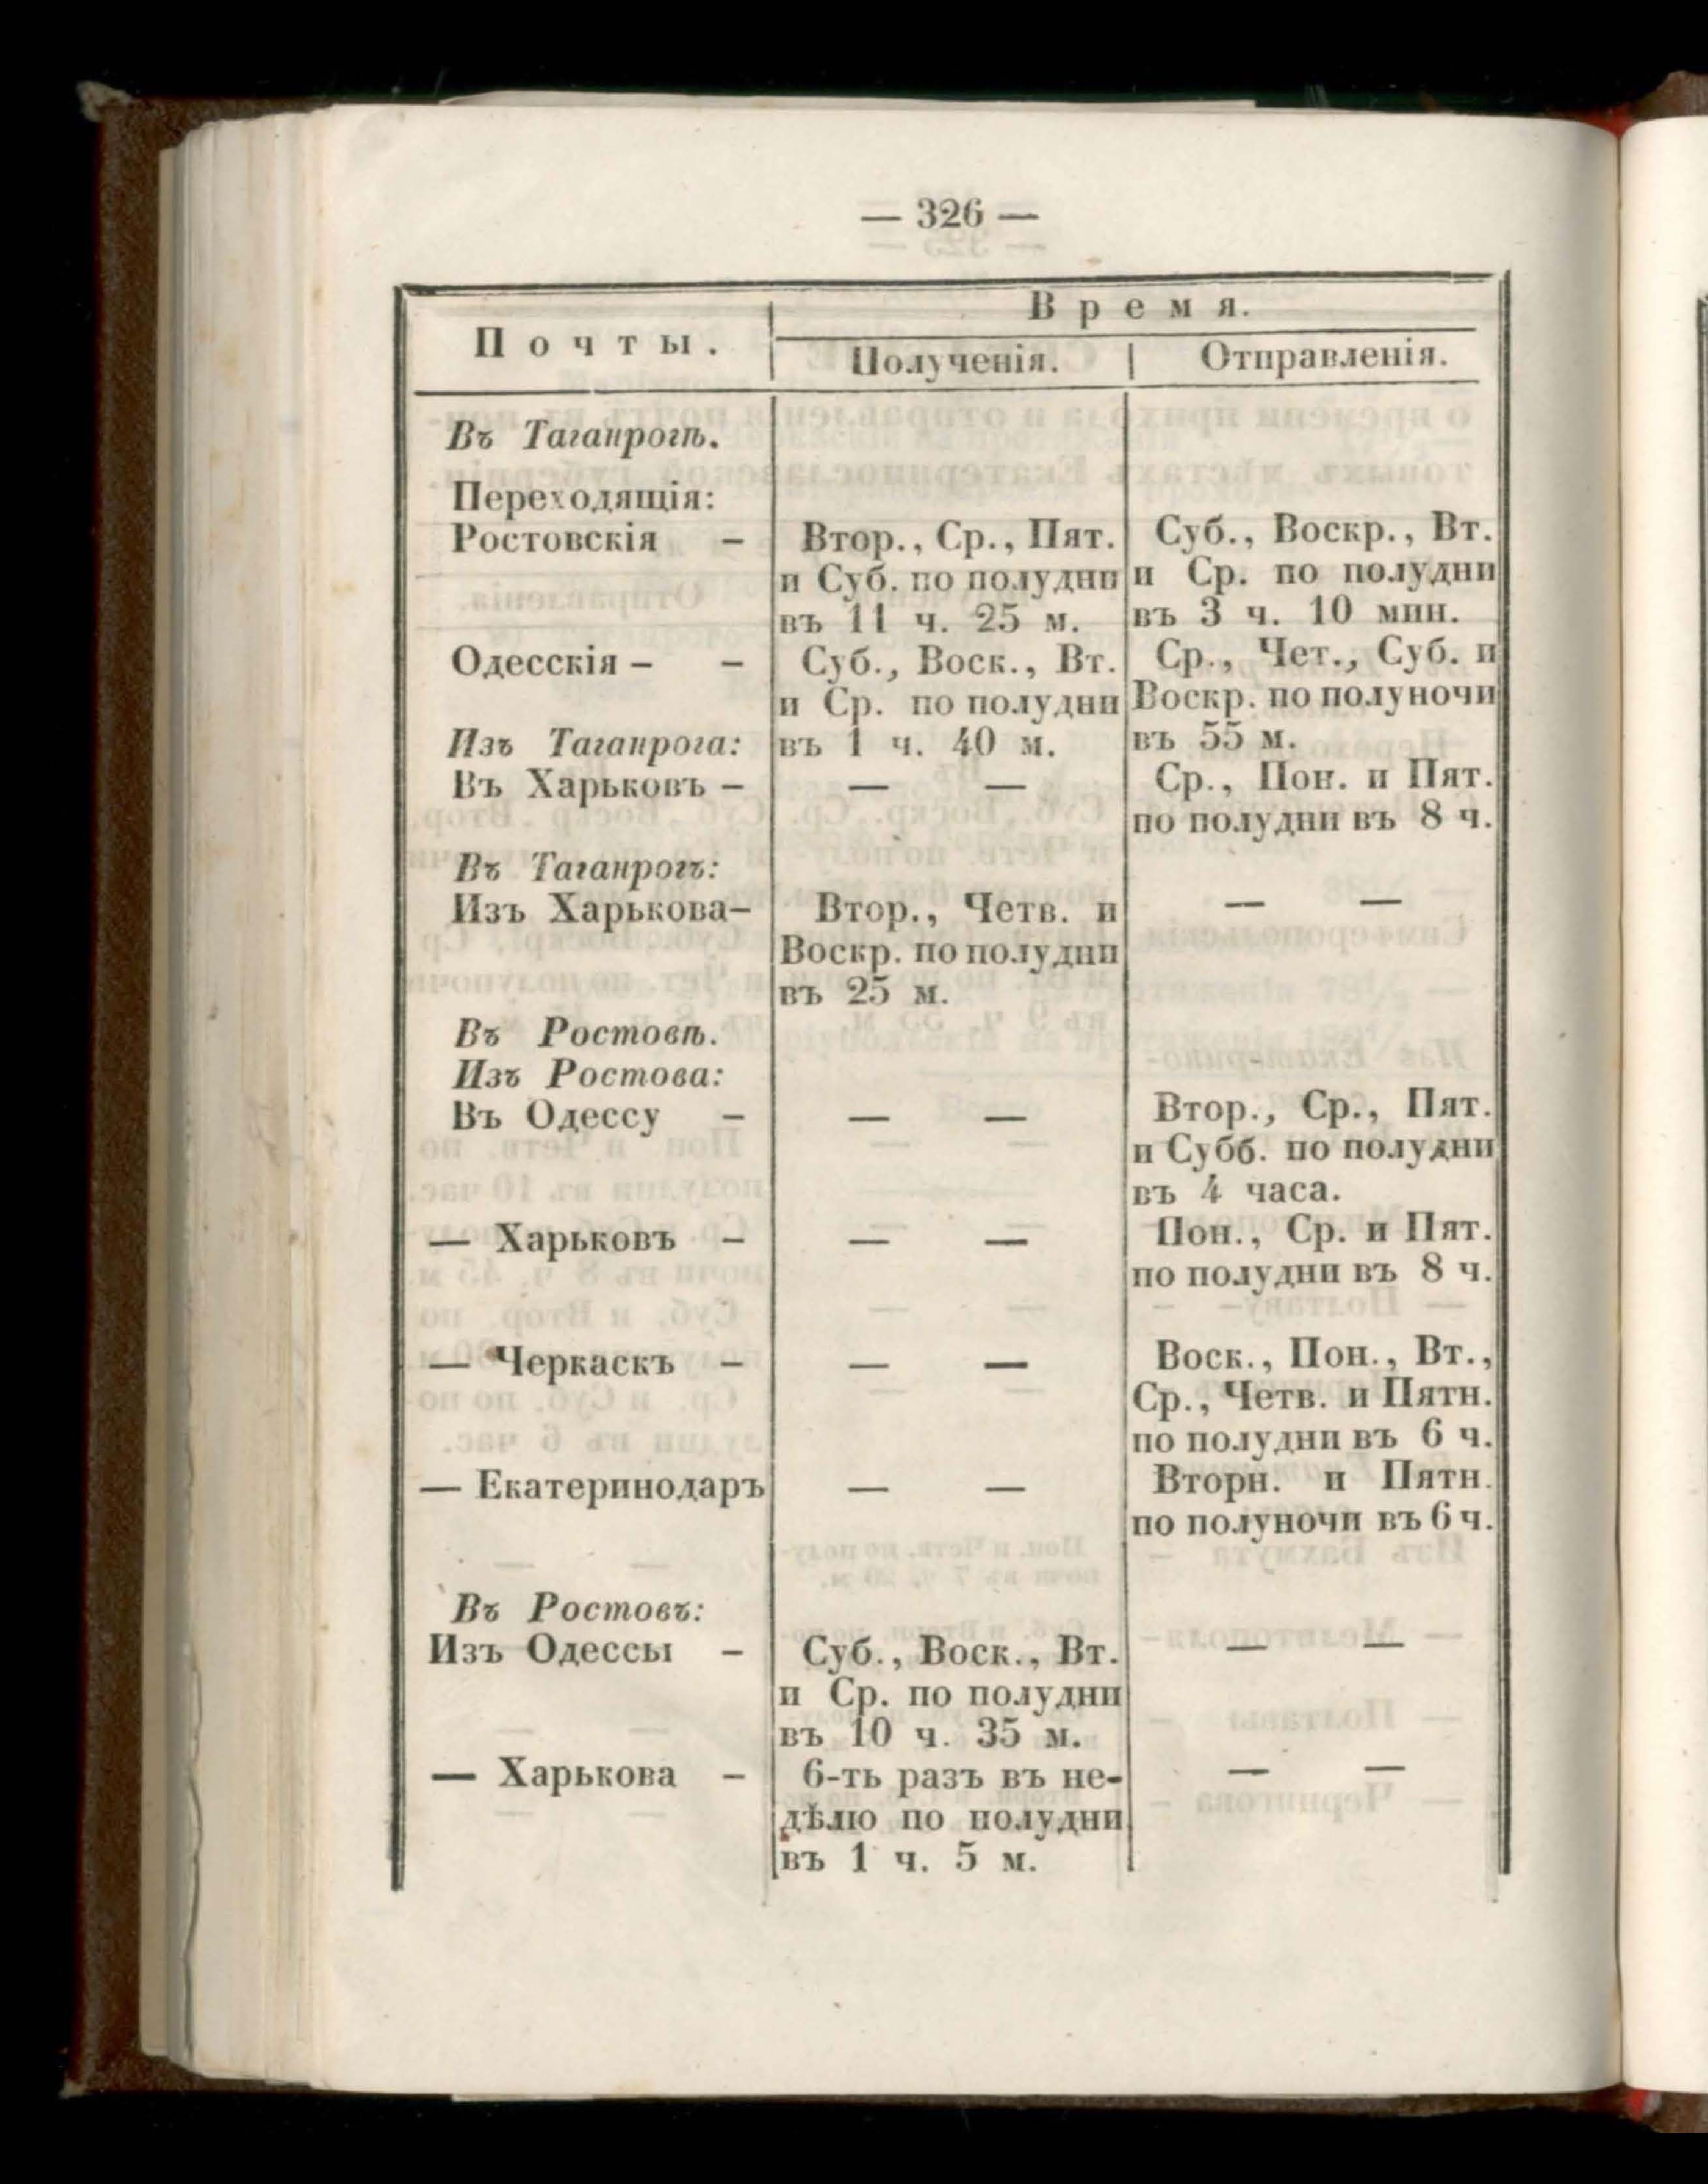 — 326 —
Почты.
Время.
Полученія. | Отправленія.
Въ Таганрогѣ.
Переходящія:
Ростовскія –
Втор., Ср., Пят.
и Суб. по полудни
въ 11 ч. 25 м.
Суб., Воскр., Вт.
и Ср. по полудни
въ 3 ч. 10 мин.
Одесскія – –
Суб., Воск., Вт.
и Ср. по полудни
въ 1 ч. 40 м.
Ср., Чет., Суб. и
Воскр. по полуночи
въ 55 м.
Изъ Таганрога:
Въ Харьковъ –
— —
Ср., Пон. и Пят.
по полудни въ 8 ч.
Въ Таганрогъ:
Изъ Харькова–
Втор., Четв. и
Воскр. по полудни
въ 25 м.
— —
Въ Ростовѣ.
Изъ Ростова:
Въ Одессу –
— —
Втор., Ср., Пят.
и Субб. по полудни
въ 4 часа.
— Харьковъ –
— —
Пон., Ср. и Пят.
по полудни въ 8 ч.
— Черкаскъ –
— —
Воск., Пон., Вт.,
Ср., Четв. и Пятн.
по полудни въ 6 ч.
— Екатеринодаръ
— —
Вторн. и Пятн.
по полуночи въ 6 ч.
Въ Ростовъ:
Изъ Одессы –
Суб., Воск., Вт.
и Ср. по полудни
въ 10 ч. 35 м.
— —
— Харькова –
6-ть разъ въ не-
дѣлю по полудни
въ 1 ч. 5 м.
— —